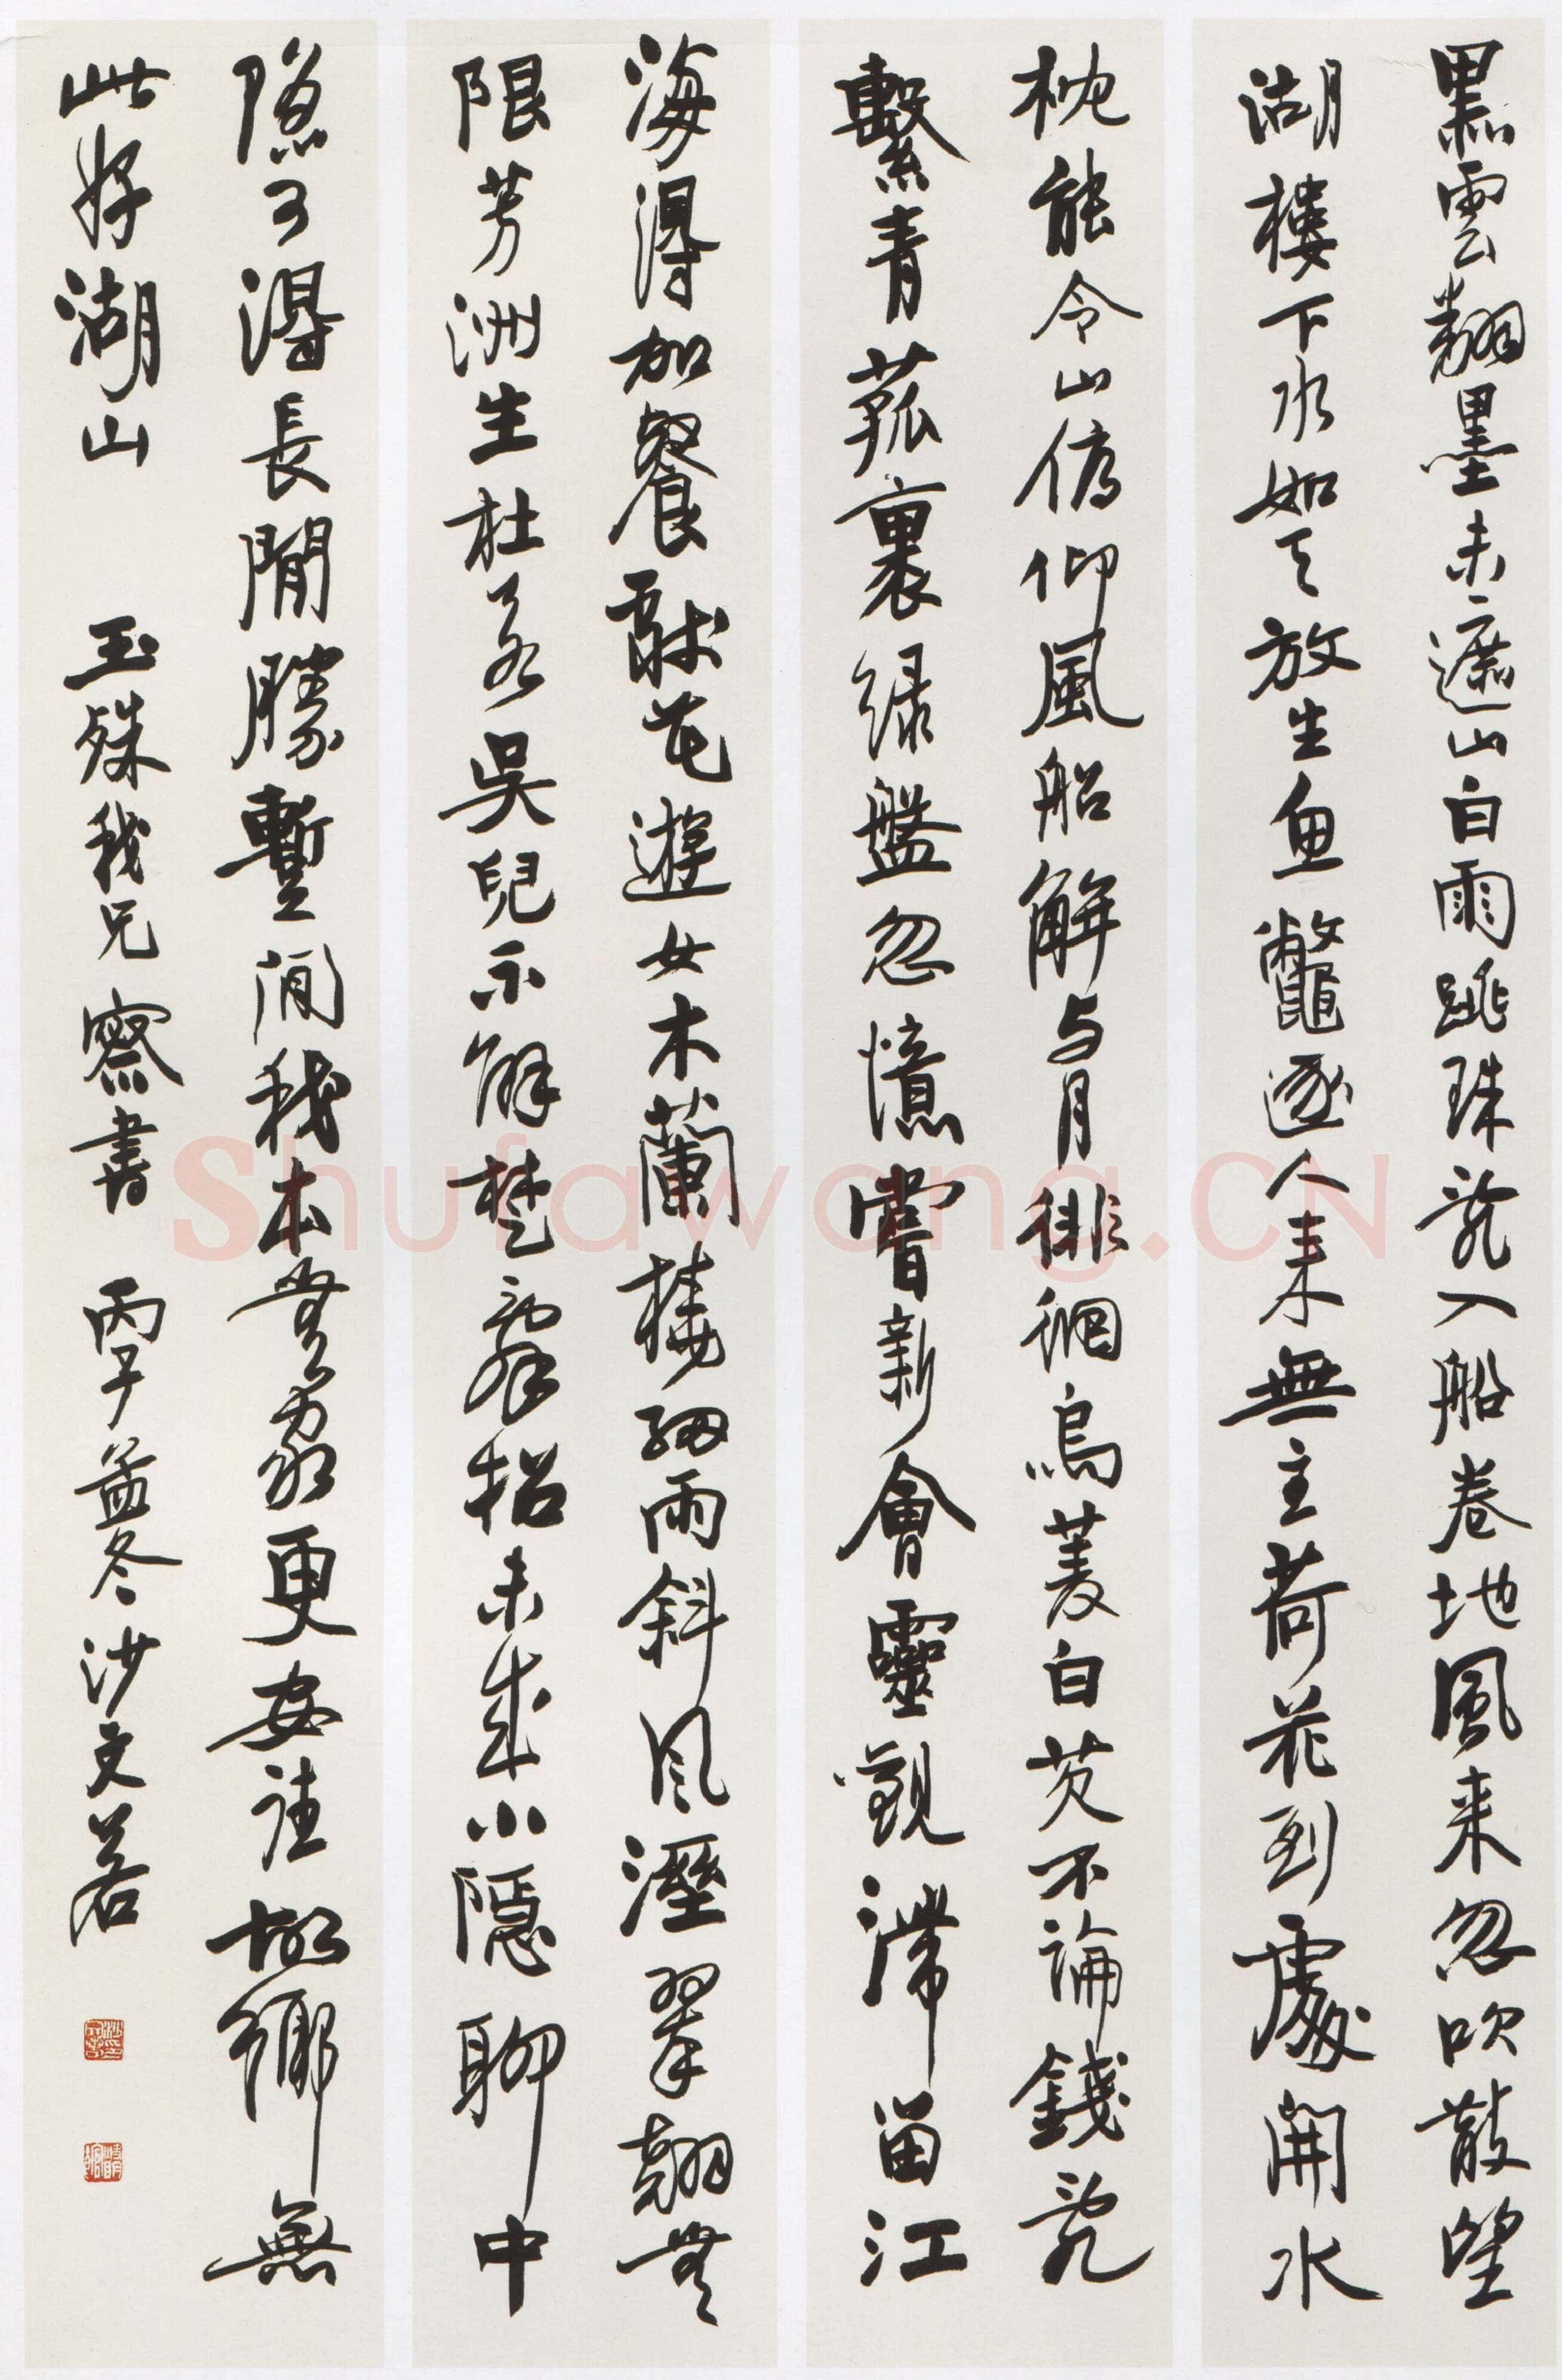 黑雲翻墨未遮山白雨跳珠亂入船卷地風来忽吹散望
湖樓下水如天放生魚鼈逐人来無主荷花到處開水
枕能令山俯仰風船解与月徘徊烏菱白芡不論錢亂
繫青菰裹绿盤忽憶嘗新會靈觀滯留江
海得加餐獻花遊女木蘭橈細雨斜风溼翠翹無
限芳洲生杜若吳兒不解楚辭招未成小隱聊中
隱可得長閒勝暫閒我本無家更安往故鄉無
此好湖山 玉殊我兄察書 丙子孟冬沙文若
Shufawang.CN